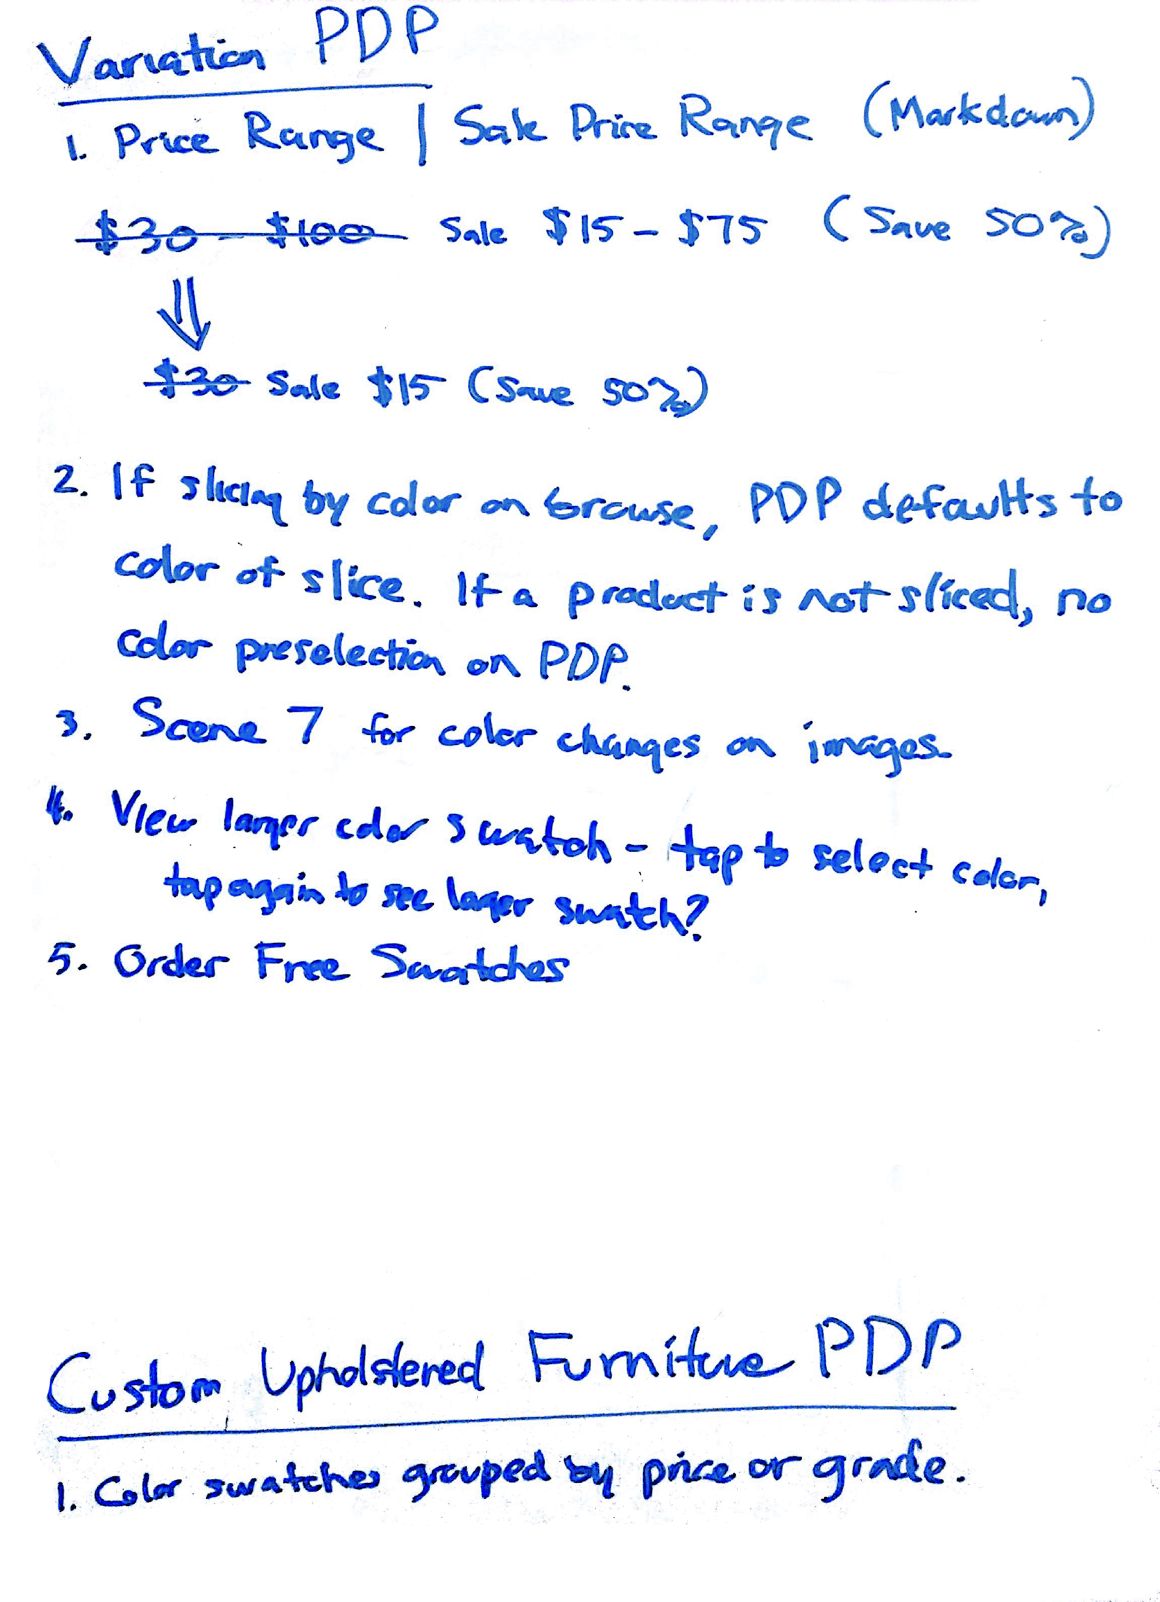 Variation PDP
1. Price Range | Sale Price Range (Markdown)
$30 - $100 Sale $15 - $75 (Save 50%)
$30 Sale $15 (Save 50%)
2. If slicing by color on browse, PDP defaults to
color of slice. If a product is not sliced, no
color preselection on PDP.
3. Scene 7 for color changes on images.
4. View larger color swatch - tap to select color,
tap again to see larger swatch?
5. Order Free Swatches
Custom Upholstered Furniture PDP
1. Color swatches grouped by price or grade.